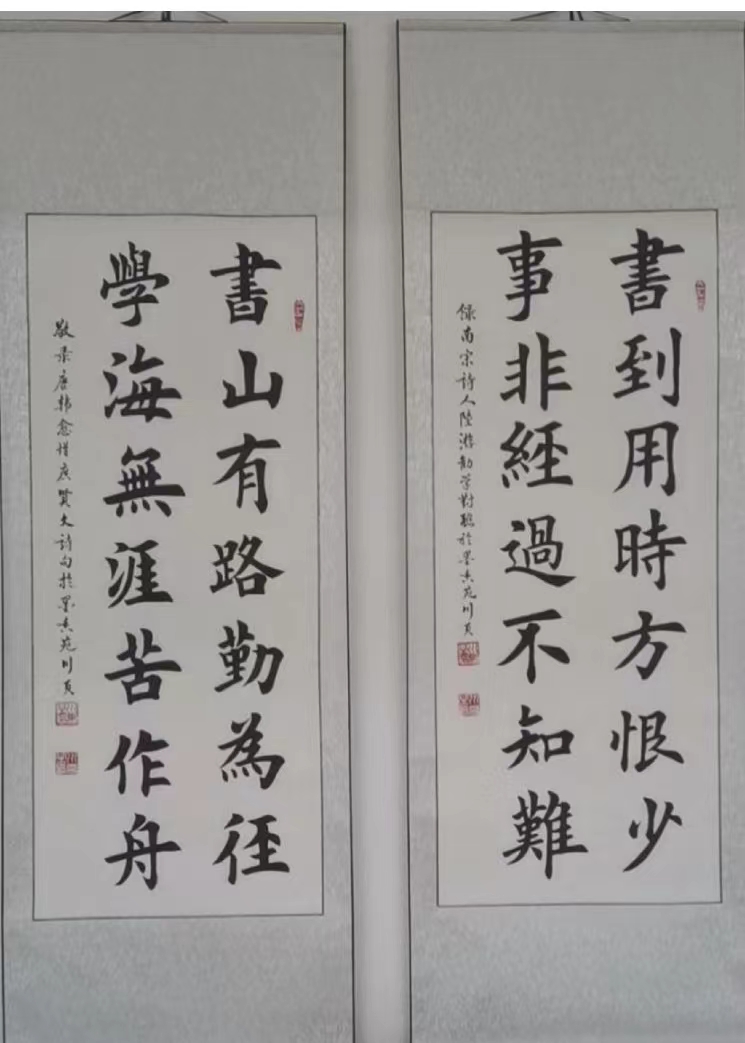 書到用時方恨少
事非經過不知難
録南宗詩人陸游勸学對聯於墨香苑川頁
書山有路勤為径
學海無涯苦作舟
敬录唐韩愈增广贤文詩句於墨香苑川頁